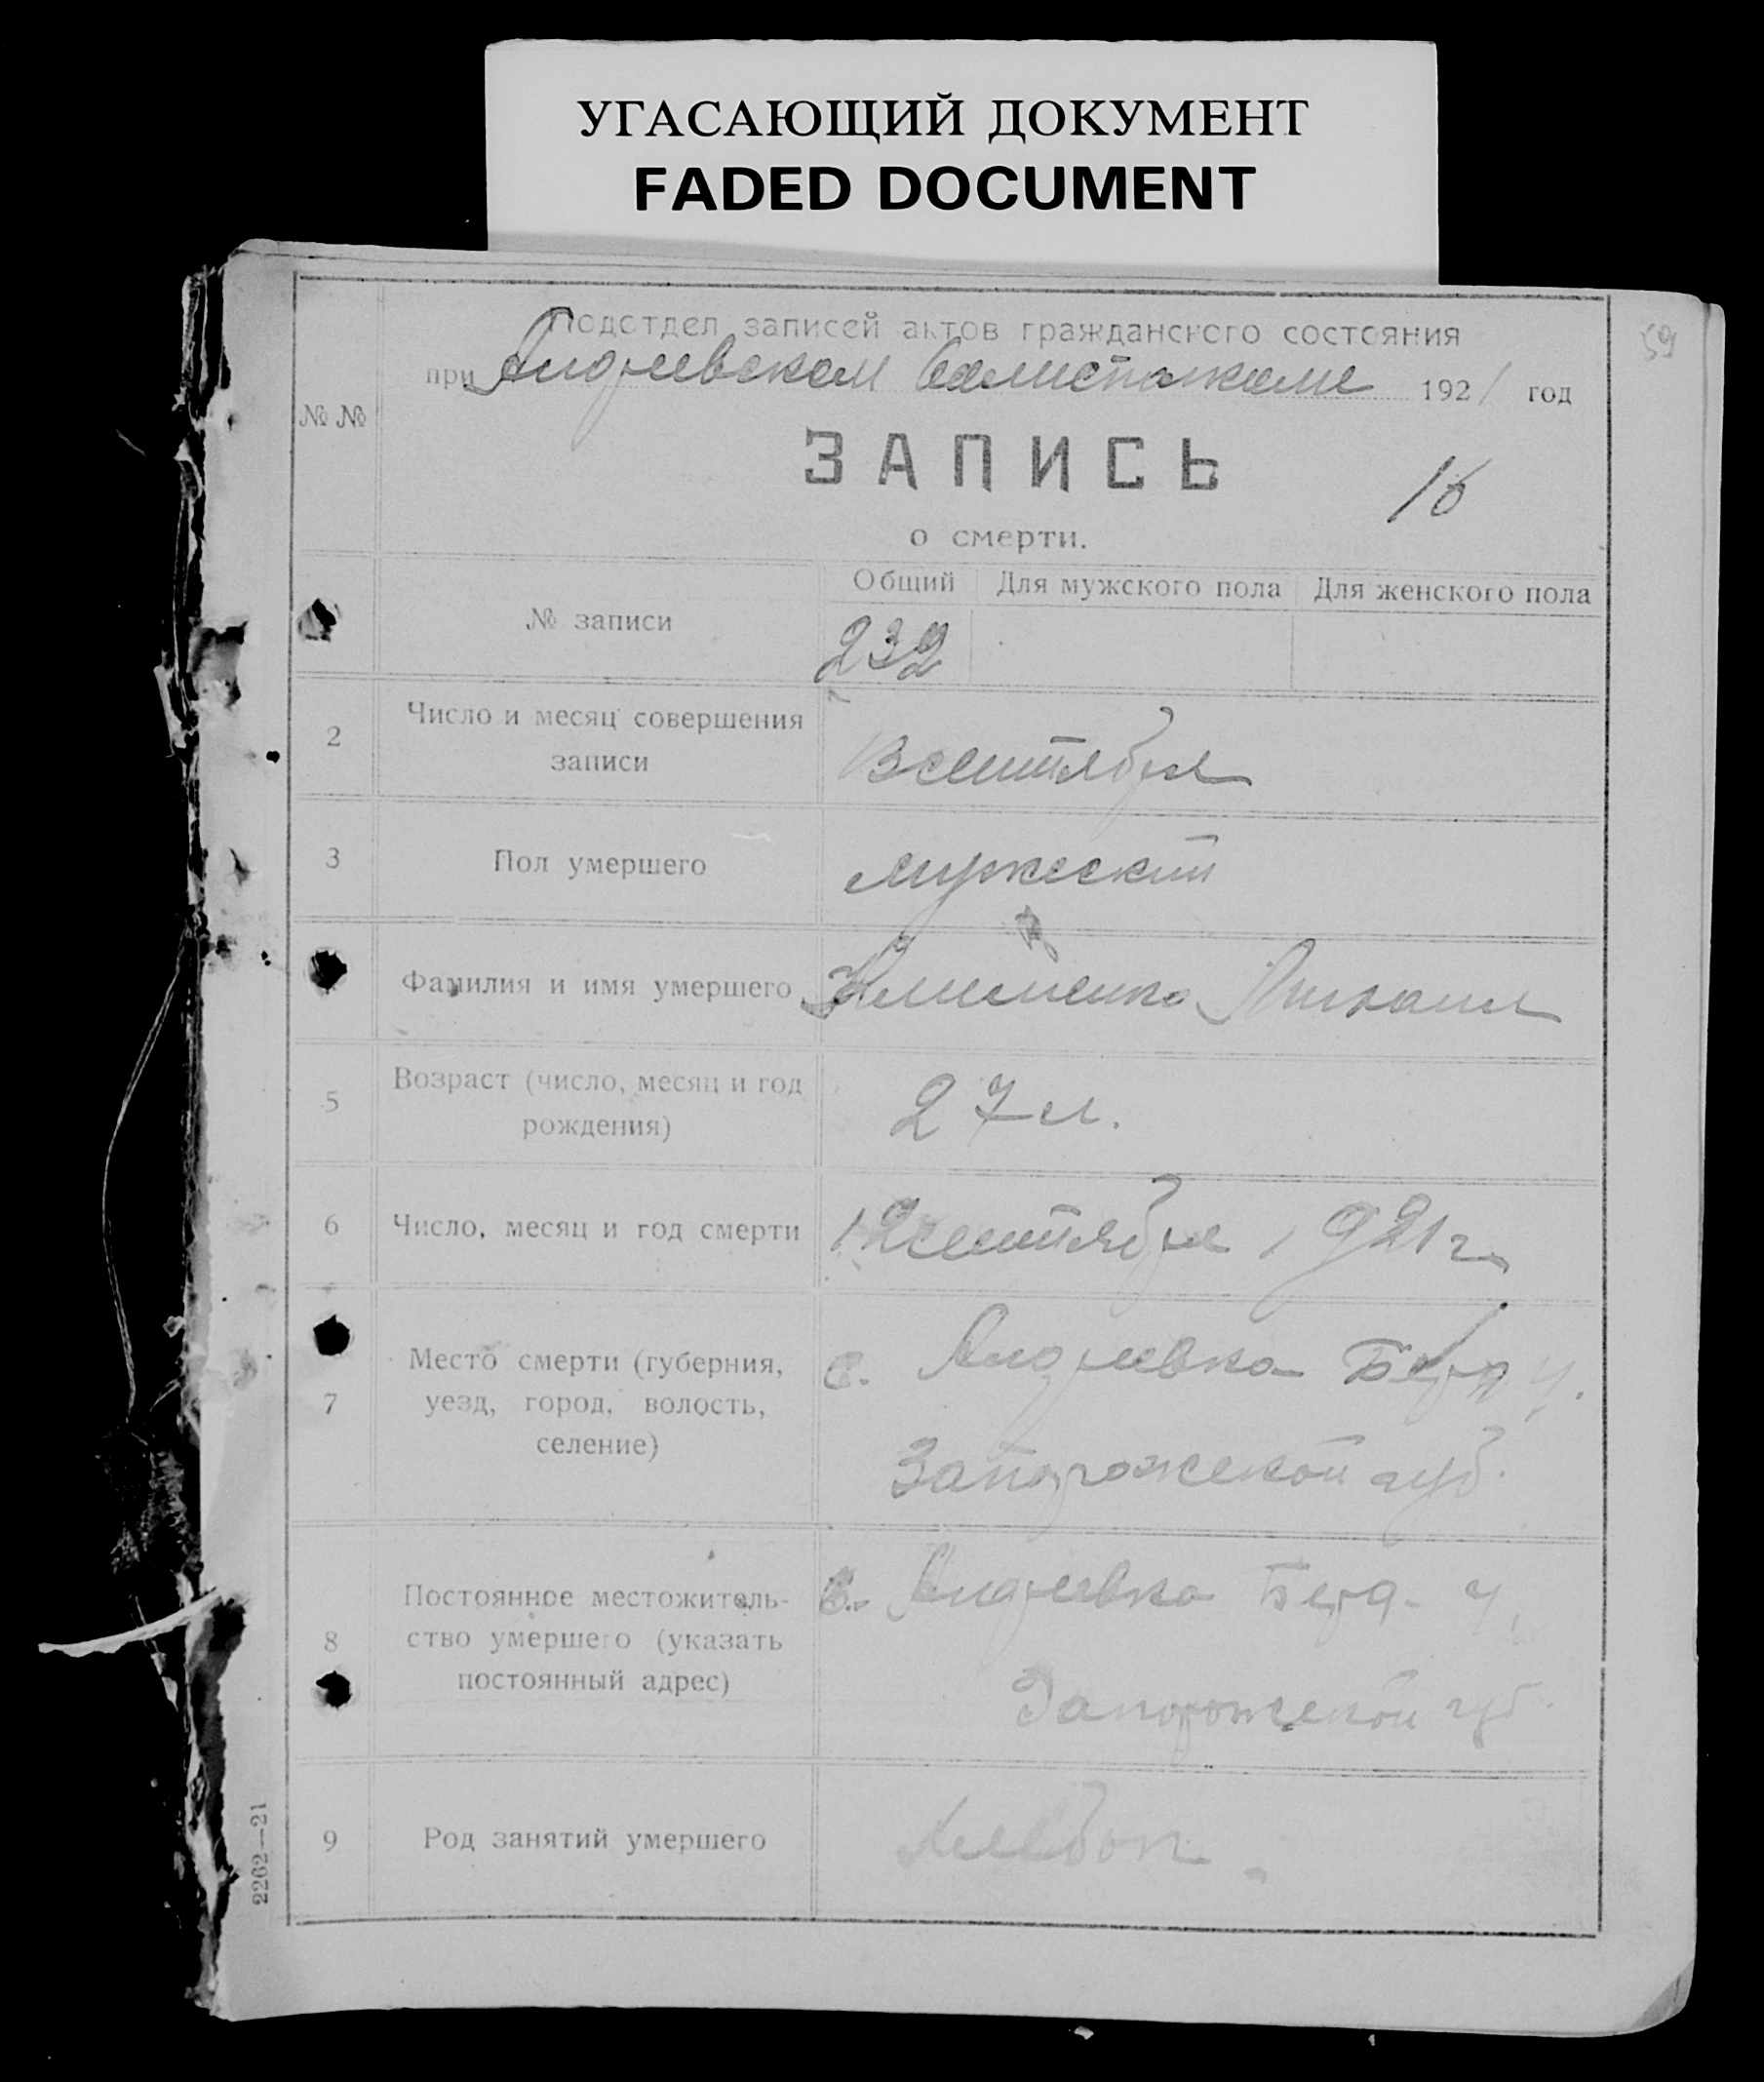 УГАСАЮЩИЙ ДОКУМЕНТ
FADED DOCUMENT
59
Подотдел записей актов гражданского состояния
при Андреевском Волисполкоме 1921 год
№ №
ЗАПИСЬ
16
о смерти.
Общий Для мужского пола Для женского пола
№ записи
232
2 Число и месяц совершения
записи
13 сентября
3 Пол умершего мужеский
Фамилия и имя умершего Клименко Михаил
5 Возраст (число, месяц и год
рождения)
27 л.
6 Число, месяц и год смерти 12 сентября 1921 г.
7 Место смерти (губерния,
уезд, город, волость,
селение)
с. Андреевка Берд у.
Запорожской губ.
8 Постоянное местожитель-
ство умершего (указать
постоянный адрес)
с. Андреевка Берд. у.
Запорожской губ.
9 Род занятий умершего Хлебоп.
2262—21